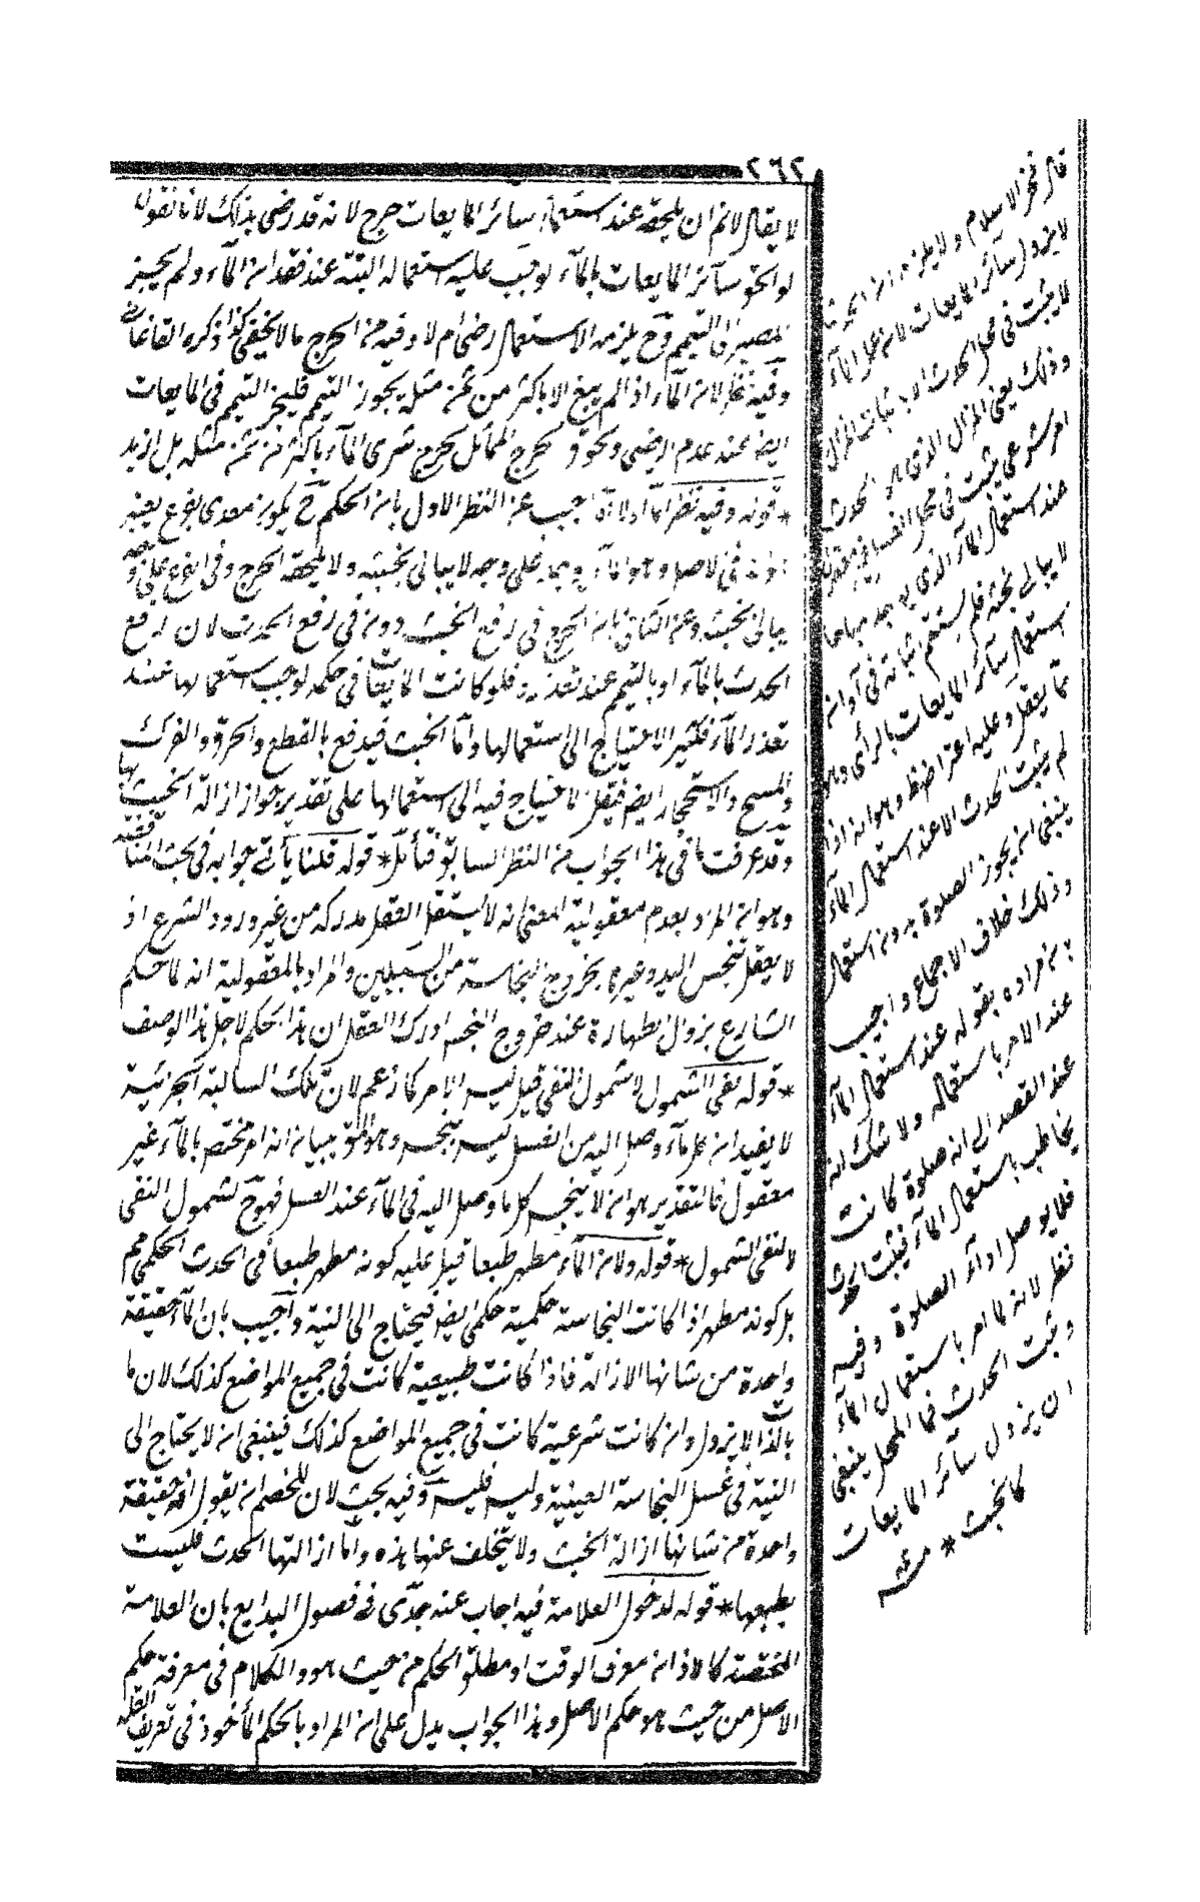 ٢٦٢
لا يقال لانم ان يلحقه عند استعمال سائر المايعات حرج لانه قد رضى بذلك لانا نقول
لو الحق سآئر المايعات بالمآء لوجب عليه استعماله البتة عند فقدان المآء ولم يجز
المصير الى التيمم وح يلزمه الاستعمال رضى ام لا وفيه من الحرج ما لا يخفى كذا ذكره القاغانى
وفيه نظر لان المآء اذا لم يبع الا باكثر من ثمن مثله يجوز التيمم فليجز التيمم فى المايعات
ايضا عند عدم الرضى ولحوق حرج المماثل لحرج شرى المآء باكثر من ثمن مثله بل ازيد
* قوله وفيه نظر اما اولا آه اجيب عن النظر الاول بان الحكم ح يكون معدى بنوع تغير
لانه فى الاصل وهو المآء يوجد على وجه لا يبالى بخبثه ولا يلحقه الحرج وفى الفرع على وجه
يبالى بخبثه وعن الثانى بان الحرج فى رفع الخبث دونه فى رفع الحدث لان رفع
الحدث بالمآء او بالتيمم عند تعذره فلو كانت المايعات فى حكمه لوجب استعمالها عند
تعذر المآء فكثير الاحتياج الى استعمالها واما الخبث فيدفع بالقطع والحرق والفرك
والمسح والاستحجار ايضا فيقل الاحتياج فيه الى استعمالها على تقدير جواز ازالة الخبث بها
وقد عرفت ما فى هذا الجواب من النظر السابق فتأمل * قوله قلنا يأتى جوابه فى بحث المناقضة
وهو ان المراد بعدم معقولية المعنى انه لا يستقل العقل بدركه من غير ورود الشرع اذ
لا يعقل تنجس اليد وغيره بخروج النجاسة من السبيلين والمراد بالمعقولية انه لما حكم
الشارع بزوال الطهارة عند خروج النجس ادرك العقل ان هذا الحكم لاجل هذا الوصف
* قوله نفى الشمول لا شمول النفى قيل ليس الامر كما زعم لان تلك السالبة الجزئية
لا يفيد ان كل مآء وصل اليه من الغسل ليس بنجس وهو المط ببيان انه امر مختص بالمآء غير
معقول فالتقدير هو ان لا ينجس كل ما وصل اليه فى المآء عند الغسل فهو ح لشمول النفى
لا لنفى الشمول * قوله ولان المآء مطهر طبعا قيل عليه كونه مطهر طبعا فى الحدث الحكمى مم
بل كونه مطهر اذا كانت النجاسة حكمية حكمى ايضا فيحتاج الى النية واجيب بان المآء حقيقة
واحدة من شانها الازالة فاذا كانت طبيعية كانت فى جميع المواضع كذلك لان ما
بالذات لا يزول وان كانت شرعية كانت فى جميع المواضع كذلك فينبغى ان لا يحتاج الى
النية فى غسل النجاسة العينية وليس فليس وفيه بحث لان للخصم ان يقول انه حقيقة
واحدة من شانها ازالة الخبث ولا يتخلف عنها هذه واما ازالتها الحدث فليست
بطبعها * قوله لدخول العلامة فيه اجاب عنه جدى فى فصول البدايع بان العلامة
المختصة كالاذان معرف الوقت او مطلق الحكم من حيث هو والكلام فى معرفة حكم
الاصل من حيث هو حكم الاصل وهذا الجواب يدل على ان المراد بالحكم المأخوذ فى تعريف العلة
قال فخر الاسلام ولا يلزم ان الحدث
لا يزول بسآئر المايعات لان عمل المآء
لا يثبت فى محل الحدث الا باثبات المزال
وذلك يعنى المزال الذى هو الحدث
امر شرعى يثبت فى محل الغسل غير معقول
عند استعمال المآء الذى يوجد مباحا
لا يبالى بخبثه فلم يستقم اثباته فى آوانه
استعمال سآئر المايعات بالرأى وهو
مما يعقل وعليه اعتراض ظ وهو انه اذا
لم يثبت الحدث الا عند استعمال المآء
ينبغى ان يجوز الصلوة بدون استعماله
وذلك خلاف الاجماع واجيب
بان مراده بقوله عند استعمال المآء
عند الامر باستعماله ولا شك انه
عند القصد الى انه صلوة كانت
يخاطب باستعمال المآء فيثبت الحدث
فلا يوصل ادآء الصلوة وفيه
نظر لانه لما امر باستعمال المآء
وثبت الحدث فى المحل ينبغى
ان يزول بسآئر المايعات
كالخبث * منه